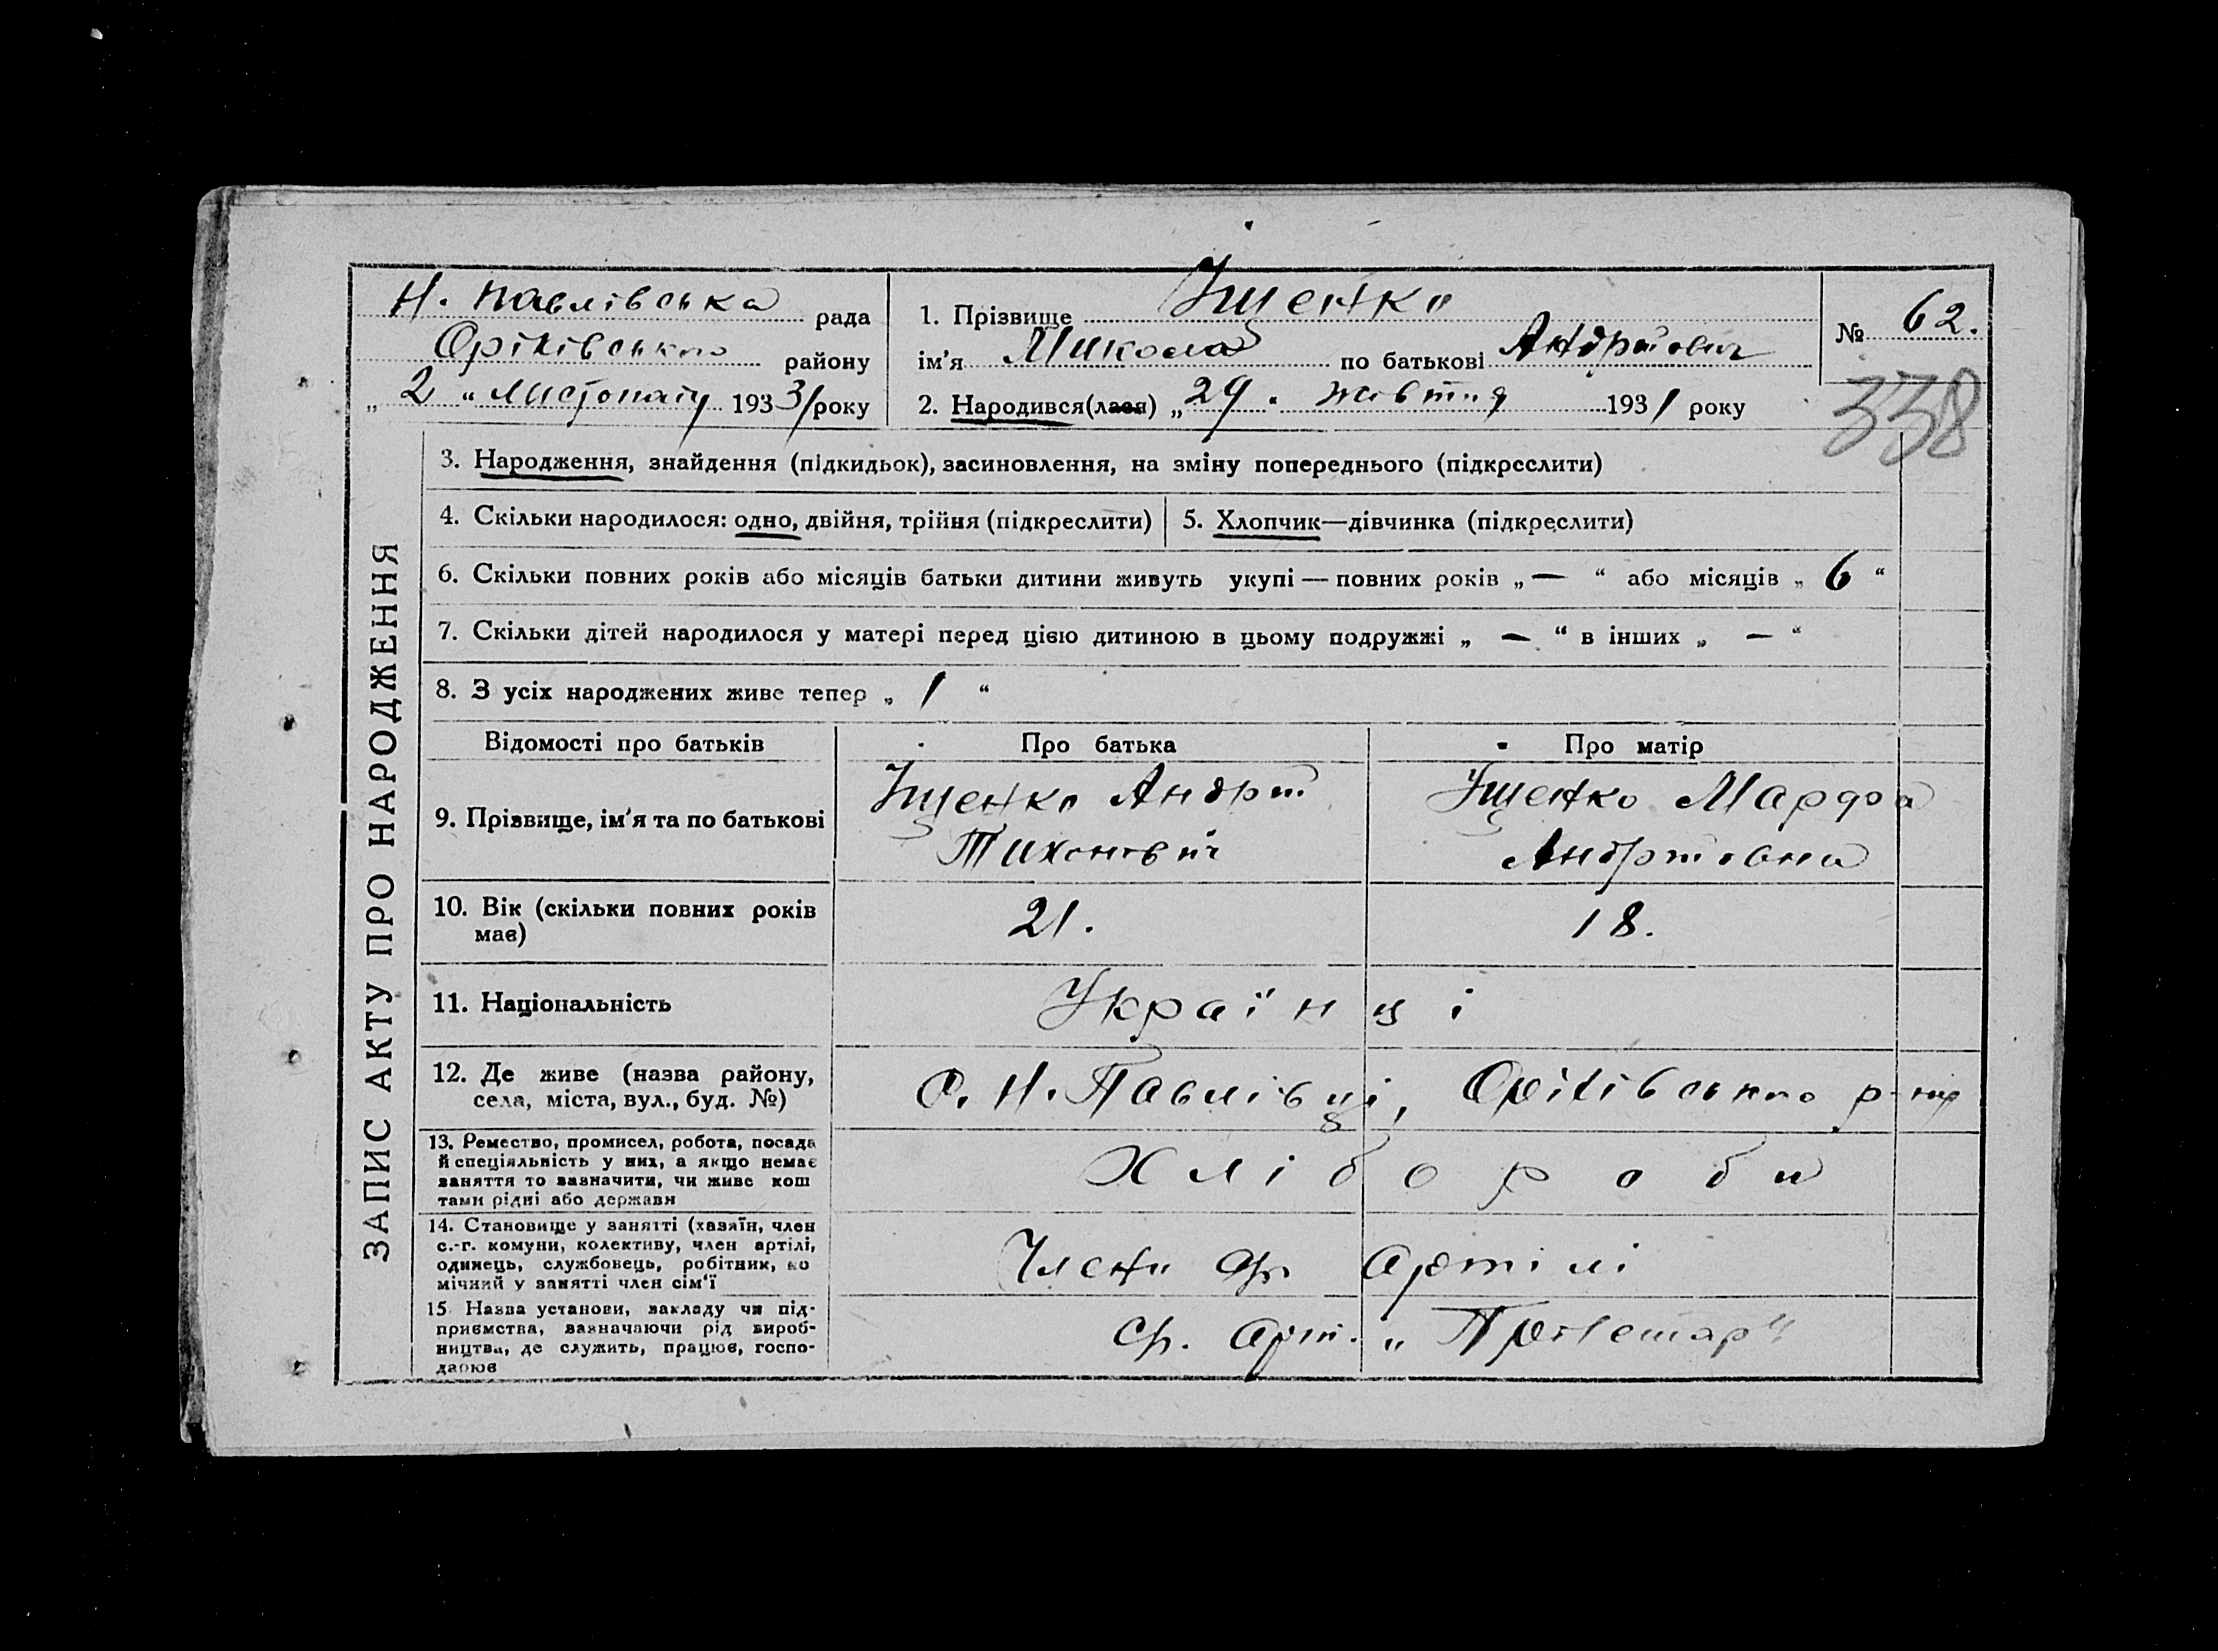 Н. Павлівська рада
Оріхівського району
„ 2 “ листопаду 1933/ року
1. Прізвище Іщенко
ім'я Микола по батькові Андрійович
2. Народився(лася) „ 29. жовтня 1931 року
№ 62.
338
ЗАПИС АКТУ ПРО НАРОДЖЕННЯ
3. Народження, знайдення (підкидьок), засиновлення, на зміну попереднього (підкреслити)
4. Скільки народилося: одно, двійня, трійня (підкреслити)
5. Хлопчик—дівчинка (підкреслити)
6. Скільки повних років або місяців батьки дитини живуть укупі — повних років „ — “ або місяців „ 6 “
7. Скільки дітей народилося у матері перед цією дитиною в цьому подружжі „ — “ в інших „ — “
8. З усіх народжених живе тепер „ 1 “
Відомості про батьків
Про батька
Про матір
9. Прізвище, ім'я та по батькові
Іщенко Андрій
Тихонович
Іщенко Марфа
Андріївна
10. Вік (скільки повних років
має)
21.
18.
11. Національність
Українці
12. Де живе (назва району,
села, міста, вул., буд. №)
С. Н. Павлівці, Оріхівського р-ну
13. Ремество, промисел, робота, посада
й спеціяльність у них, а якщо немає
заняття то зазначити, чи живе кош
тами рідні або держави
Хлібороби
14. Становище у занятті (хазяїн, член
с.-г. комуни, колективу, член артілі,
одинець, службовець, робітник, по
мічний у занятті член сім'ї
Члени с/г. артілі
15. Назва установи, закладу чи під-
приємства, зазначаючи рід вироб-
ництва, де служить, працює, госпо-
дарює
с/г. арт. „Пролетар“